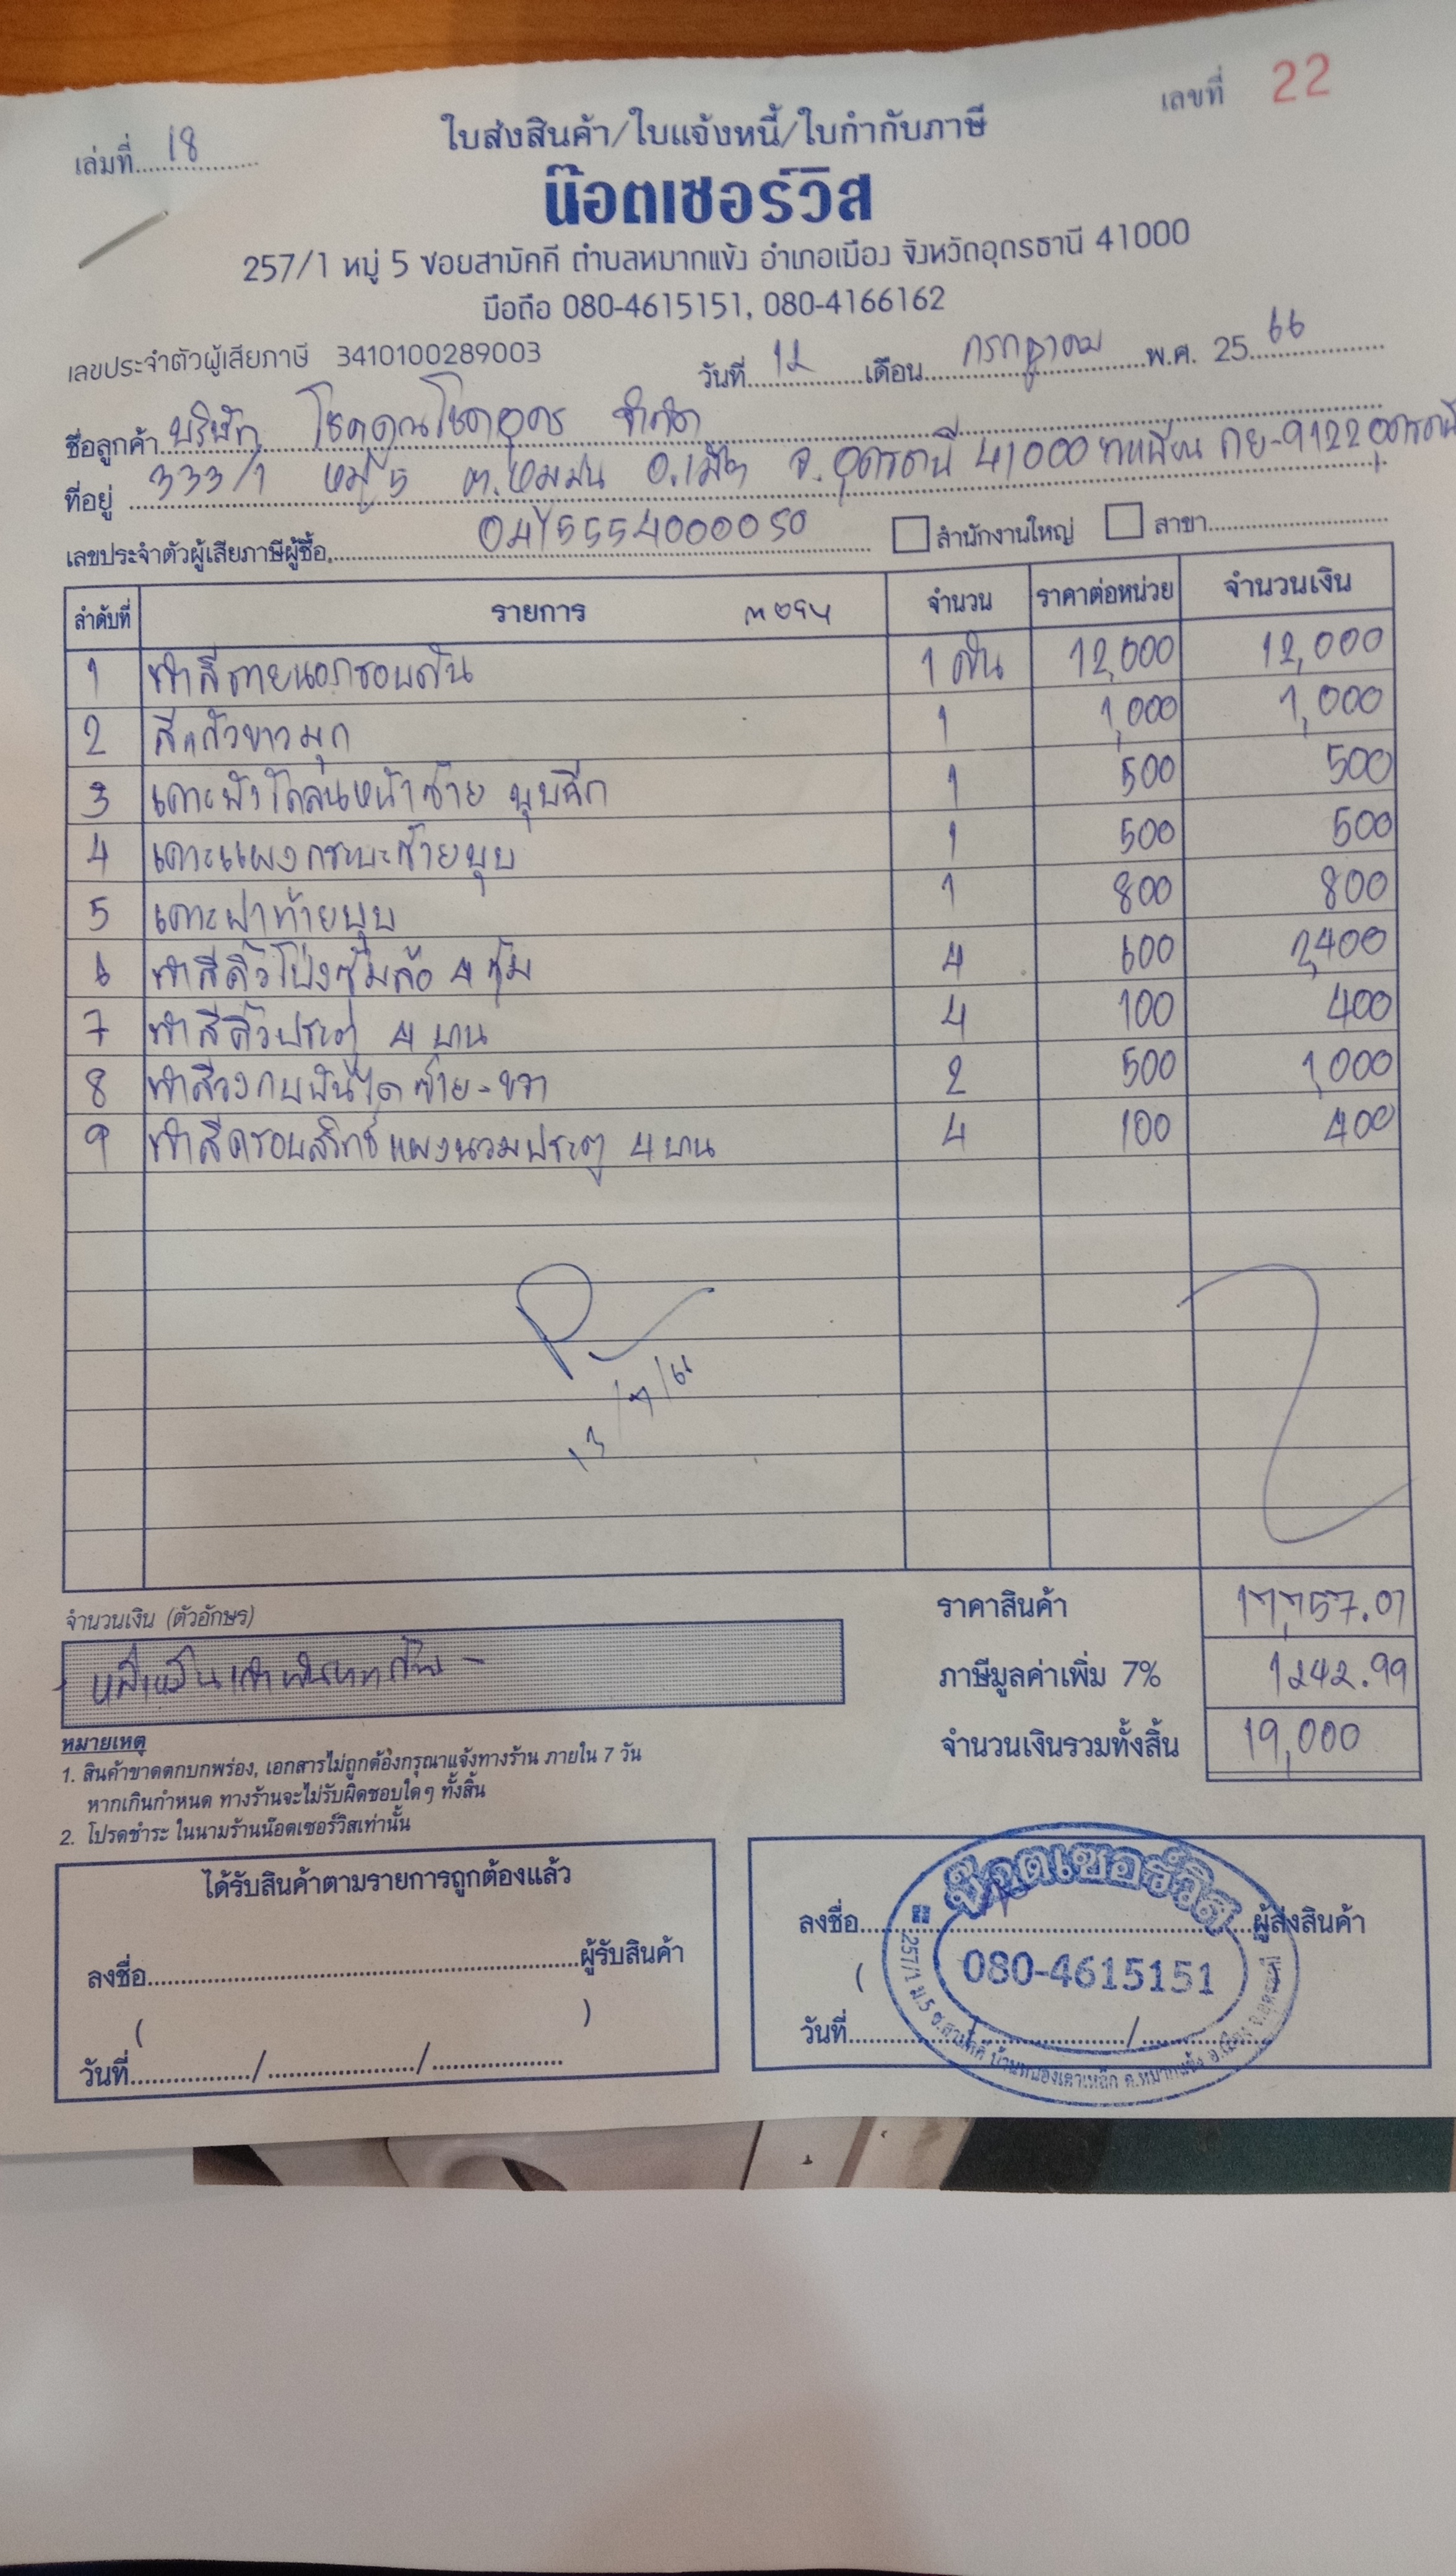 เล่มที่ 18
เลขที่ 22
ใบส่งสินค้า/ใบแจ้งหนี้/ใบกำกับภาษี
น๊อตเซอร์วิส
257/1 หมู่ 5 ซอยสามัคคี ตำบลหมากแข้ง อำเภอเมือง จังหวัดอุดรธานี 41000
มือถือ 080-4615151, 080-4166162
เลขประจำตัวผู้เสียภาษี 3410100289003
วันที่ 12 เดือน กรกฎาคม พ.ศ. 2566
ชื่อลูกค้า บริษัท โชคคูณโชคอุดร จำกัด
ที่อยู่ 333/1 หมู่ 5 ต.หมูม่น อ.เมือง จ.อุดรธานี 41000 ทะเบียน กย-9122 อุดรธานี
เลขประจำตัวผู้เสียภาษีผู้ซื้อ 0415554000050 สำนักงานใหญ่ สาขา
ลำดับที่ รายการ จำนวน ราคาต่อหน่วย จำนวนเงิน
1 ทำสีภายนอกรอบคัน 1 คัน 12,000 12,000
2 สีแก้วขาวมุก 1 1,000 1,000
3 เคาะบังโคลนหน้าซ้าย บุบฉีก 1 500 500
4 เคาะแผงกระบะซ้ายบุบ 1 500 500
5 เคาะฝาท้ายบุบ 1 800 800
6 ทำสีคิ้วโป่งซุ้มล้อ 4 ซุ้ม 4 600 2,400
7 ทำสีคิ้วประตู 4 บาน 4 100 400
8 ทำสีวงกบบันได ซ้าย-ขวา 2 500 1,000
9 ทำสีครอบสวิทช์แผงนวมประตู 4 บาน 4 100 400
13/7/66
จำนวนเงิน (ตัวอักษร)
หนึ่งหมื่นเก้าพันบาทถ้วน -
ราคาสินค้า 17,757.01
ภาษีมูลค่าเพิ่ม 7% 1242.99
จำนวนเงินรวมทั้งสิ้น 19,000
หมายเหตุ
1. สินค้าขาดตกบกพร่อง, เอกสารไม่ถูกต้องกรุณาแจ้งทางร้าน ภายใน 7 วัน
หากเกินกำหนด ทางร้านจะไม่รับผิดชอบใดๆ ทั้งสิ้น
2. โปรดชำระ ในนามร้านน๊อตเซอร์วิสเท่านั้น
ได้รับสินค้าตามรายการถูกต้องแล้ว
ลงชื่อ ผู้รับสินค้า
( )
วันที่ / /
ลงชื่อ ผู้ส่งสินค้า
( )
วันที่ / /
น๊อตเซอร์วิส
080-4615151
257/1 ม.5 ซ.สามัคคี บ้านหนองเตาเหล็ก ต.หมากแข้ง อ.เมือง จ.อุดรธานี